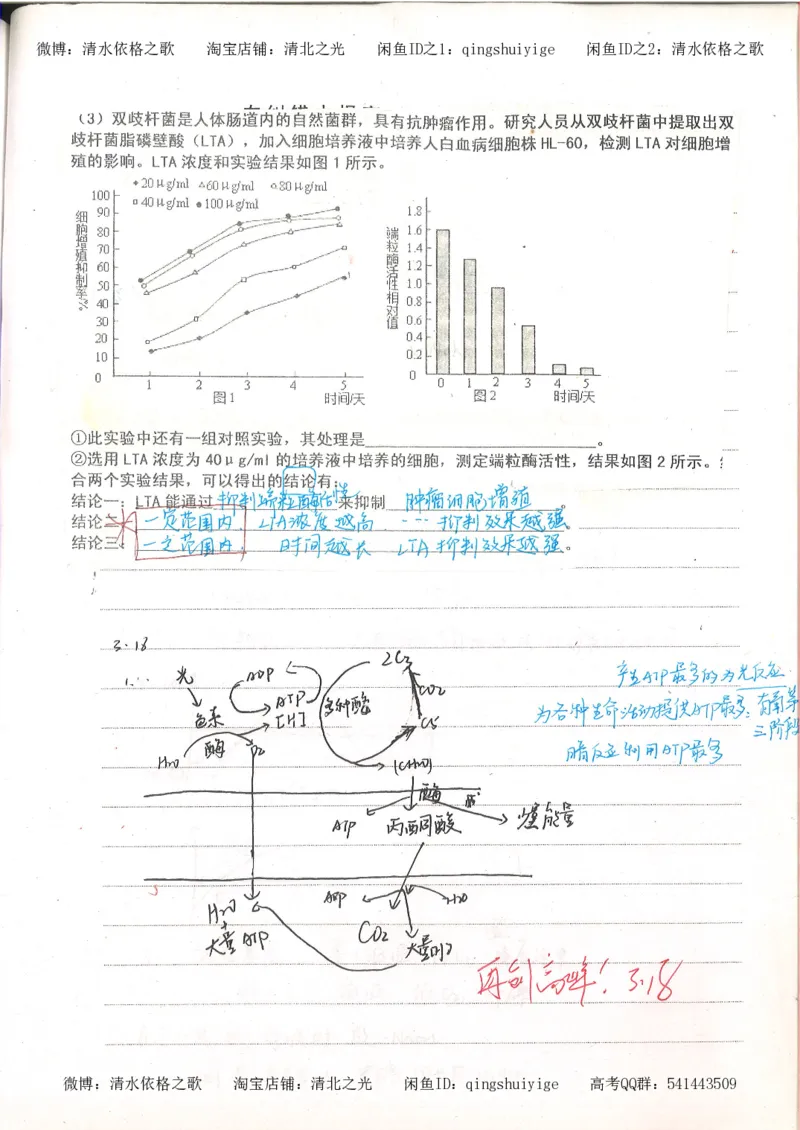 微博：清水依格之歌 淘宝店铺：清北之光 闲鱼ID之1：qingshuiyige 闲鱼ID之2：清水依格之歌
（3）双歧杆菌是人体肠道内的自然菌群，具有抗肿瘤作用。研究人员从双歧杆菌中提取出双
歧杆菌脂磷壁酸（LTA），加入细胞培养液中培养人白血病细胞株 HL-60，检测 LTA 对细胞增
殖的影响。LTA 浓度和实验结果如图 1 所示。
20μg/ml 60μg/ml 80μg/ml
40μg/ml 100μg/ml
细胞增殖抑制率/%
100
90
80
70
60
50
40
30
20
10
0
1 2 3 4 5
图1 时间/天
端粒酶活性相对值
1.8
1.6
1.4
1.2
1.0
0.8
0.6
0.4
0.2
0
0 1 2 3 4 5
图2 时间/天
①此实验中还有一组对照实验，其处理是 。
②选用 LTA 浓度为 40μg/ml 的培养液中培养的细胞，测定端粒酶活性，结果如图 2 所示。
合两个实验结果，可以得出的结论有：
结论一：LTA 能通过 抑制端粒酶活性 来抑制 肿瘤细胞增殖 。
结论二：一定范围内 LTA浓度越高 … 抑制效果越强
结论三：一定范围内， 时间越长 LTA抑制效果越强。
3.18
1...
光 ADP 2C3
ATP 多种酶 CO2
色素 [H] C5
H2O 酶 O2 (CH2O)
产生ATP最多的为光反应
为各种生命活动提供ATP最多：有氧第
三阶段
暗反应利用ATP最多
酶
ATP 丙酮酸 少量能量
H2O ATP H2O
+
大量ATP CO2 大量[H]
再创高峰！3.18
微博：清水依格之歌 淘宝店铺：清北之光 闲鱼ID：qingshuiyige 高考QQ群：541443509